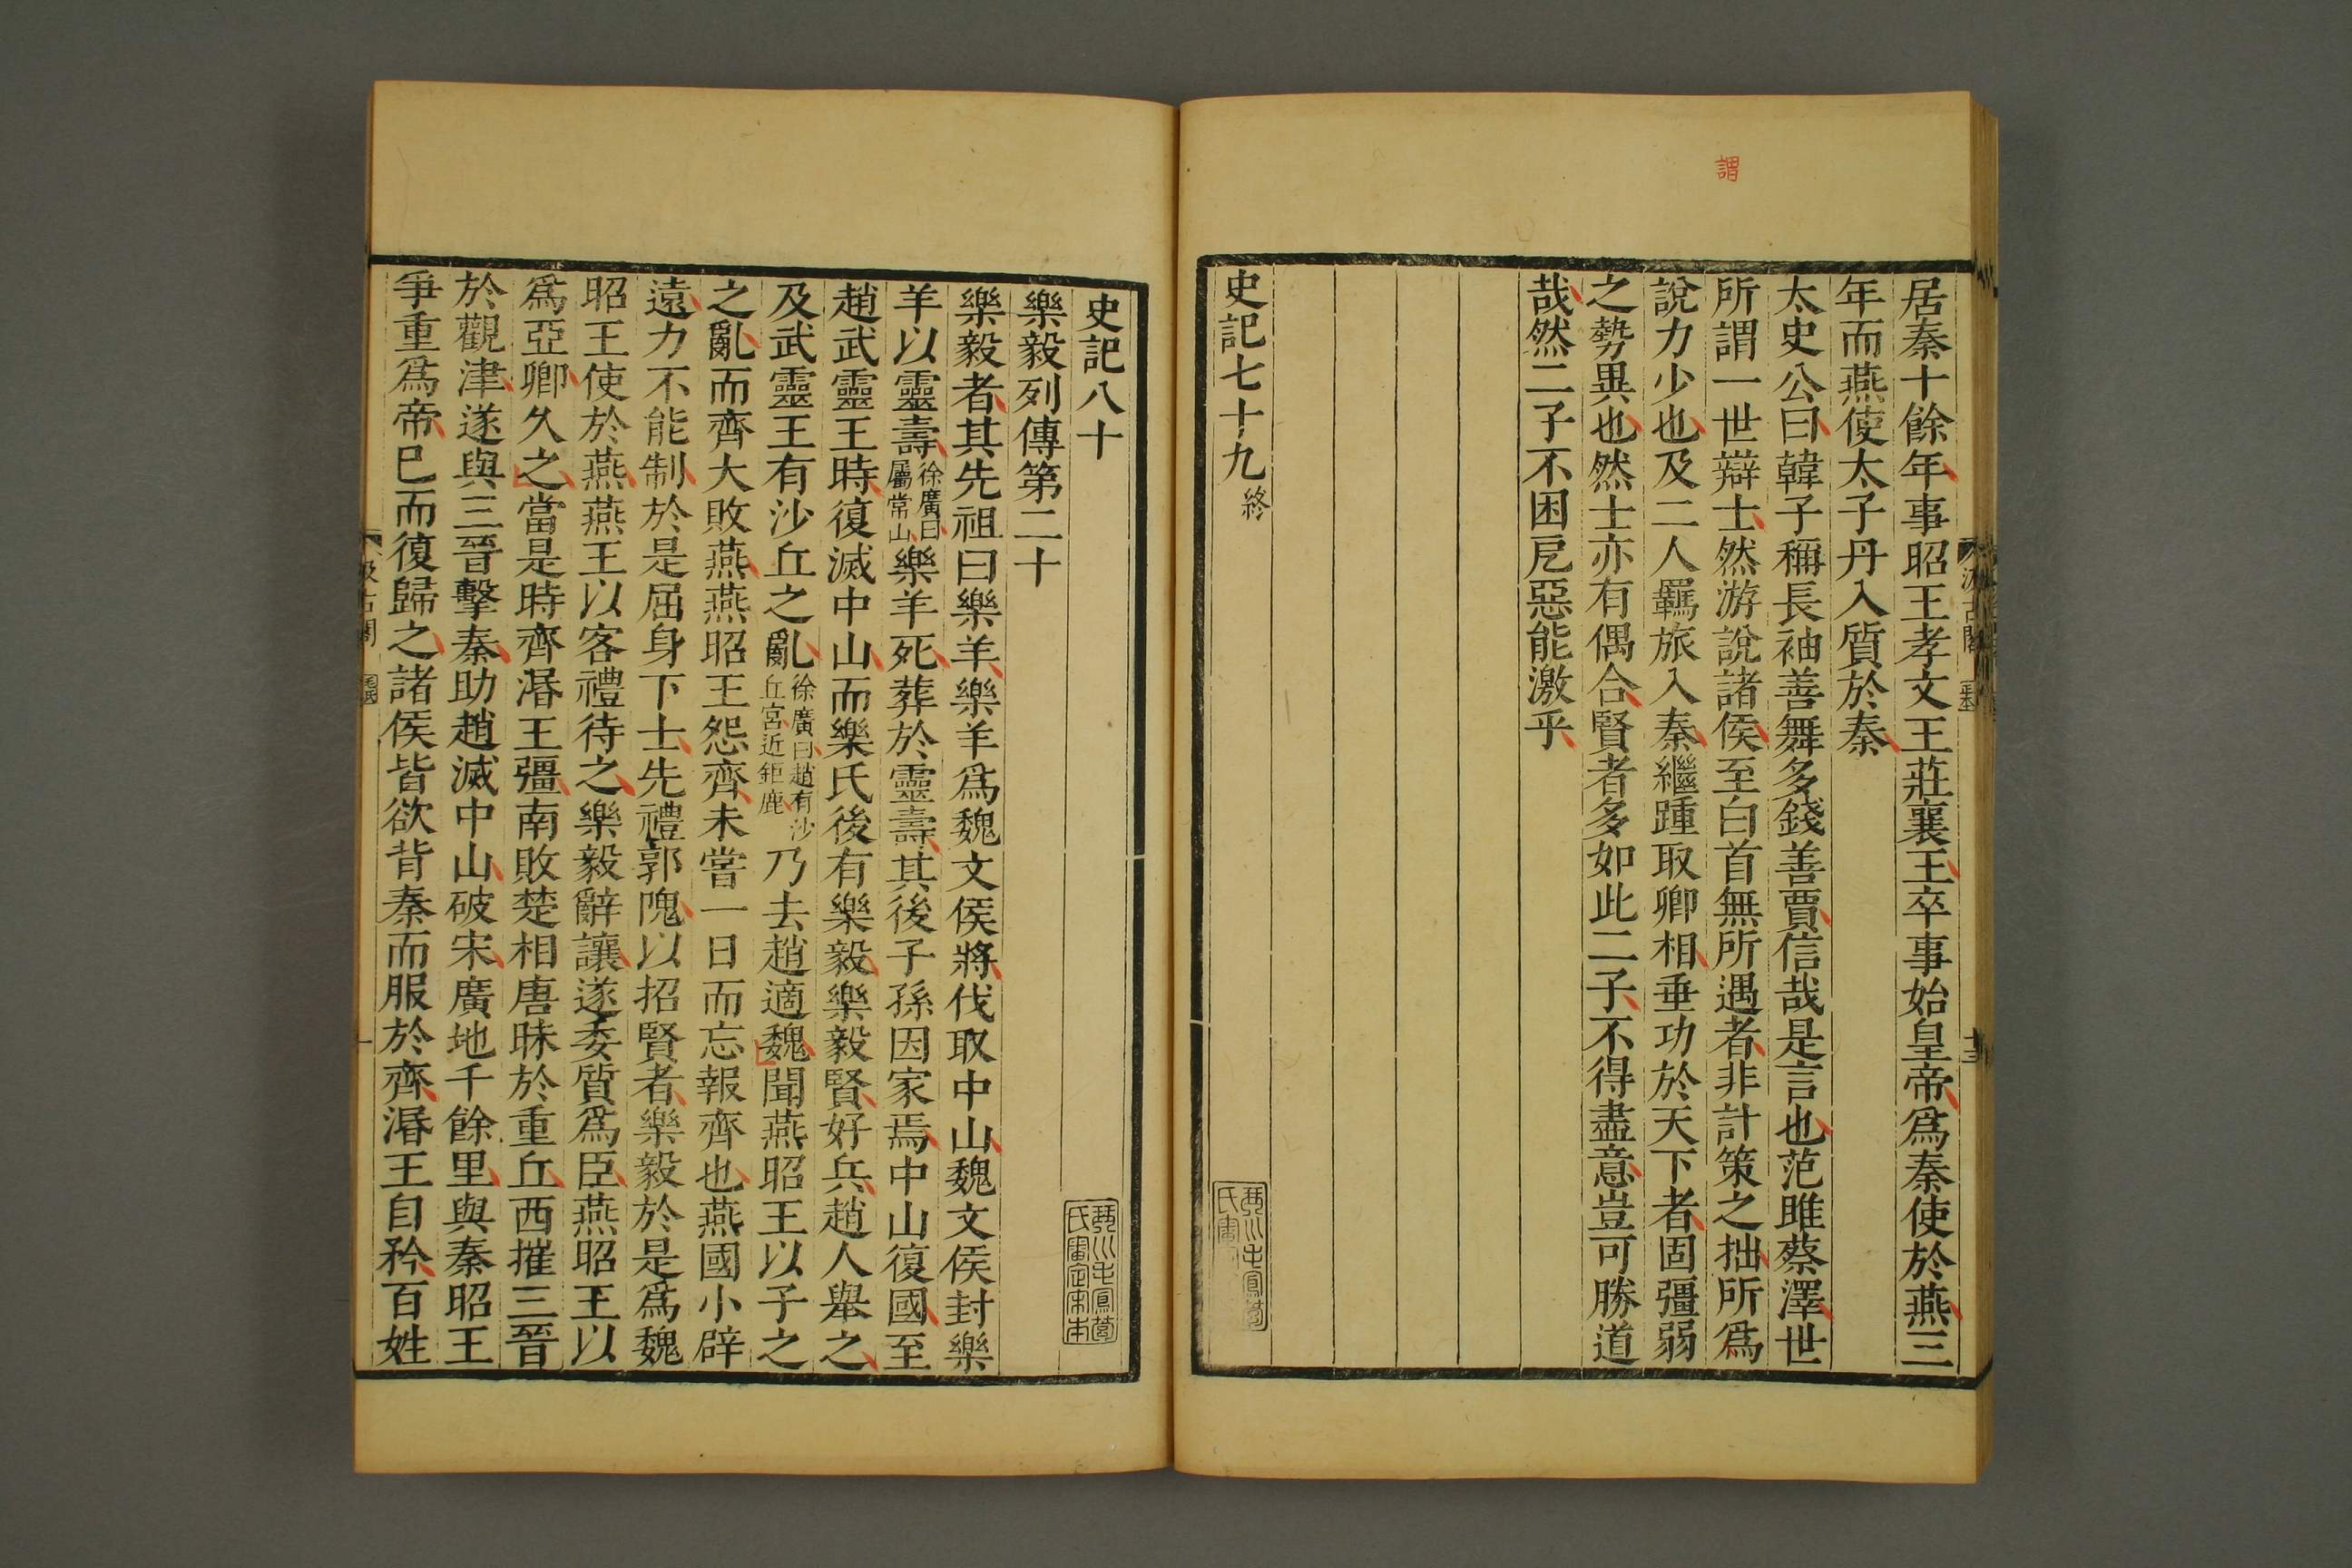 謂
居秦十餘年事昭王孝文王莊襄王卒事始皇帝爲秦使於燕三
年而燕使太子丹入質於秦
太史公曰韓子稱長袖善舞多錢善賈信哉是言也范雎蔡澤世
所謂一世辯士然游說諸侯至白首無所遇者非計策之拙所爲
說力少也及二人羈旅入秦繼踵取卿相垂功於天下者固彊弱
之勢異也然士亦有偶合賢者多如此二子不得盡意豈可勝道
哉然二子不困戹惡能激乎
史記七十九終
史記八十
樂毅列傳第二十
樂毅者其先祖曰樂羊樂羊爲魏文侯將伐取中山魏文侯封樂
羊以靈壽徐廣曰屬常山樂羊死葬於靈壽其後子孫因家焉中山復國至
趙武靈王時復滅中山而樂氏後有樂毅樂毅賢好兵趙人舉之
及武靈王有沙丘之亂徐廣曰趙有沙丘宮近鉅鹿乃去趙適魏聞燕昭王以子之
之亂而齊大敗燕燕昭王怨齊未嘗一日而忘報齊也燕國小辟
遠力不能制於是屈身下士先禮郭隗以招賢者樂毅於是爲魏
昭王使於燕燕王以客禮待之樂毅辭讓遂委質爲臣燕昭王以
爲亞卿久之當是時齊湣王彊南敗楚相唐昧於重丘西摧三晉
於觀津遂與三晉擊秦助趙滅中山破宋廣地千餘里與秦昭王
爭重爲帝巳而復歸之諸侯皆欲背秦而服於齊湣王自矜百姓